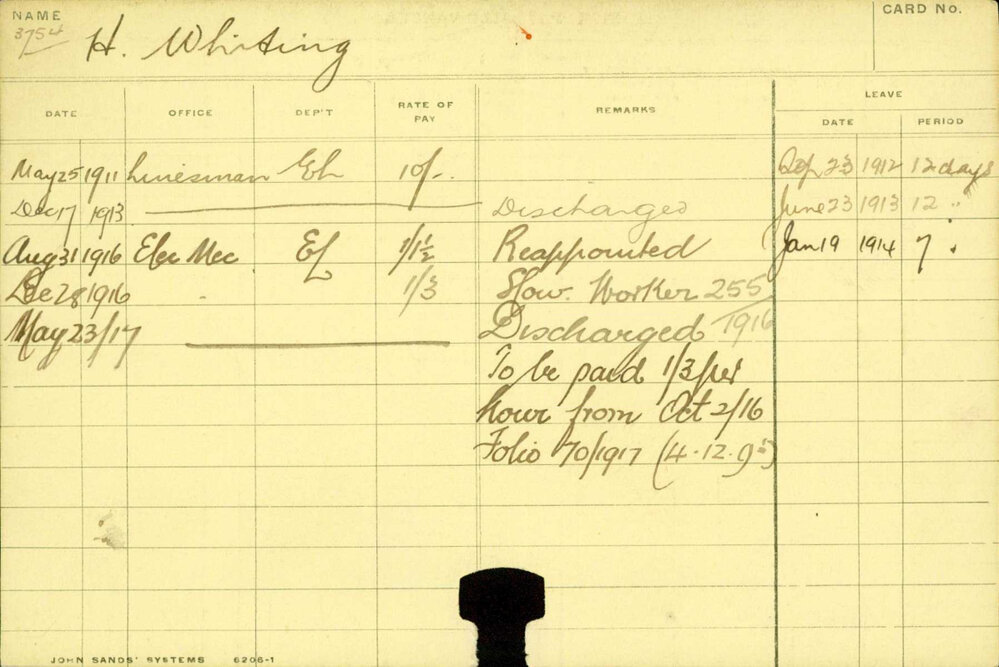 NAME
CARD NO.
3754
H. Whiting
LEAVE
DATE OFFICE DEP'T RATE OF PAY REMARKS DATE PERIOD
May 25 1911 Linesman EL 10/- Sep 23 1912 12 days
Dec 17 1913 Discharged June 23 1913 12 "
Aug 31 1916 Elec Mec EL 1/1½ Reappointed Jan 19 1914 7 "
Dec 28 1916 1/3 Slow. Worker 255/1916
May 23/17 Discharged
To be paid 1/3 per
hour from Oct 2/16
Folio 70/1917 (4.12.
JOHN SANDS' SYSTEMS 6206-1